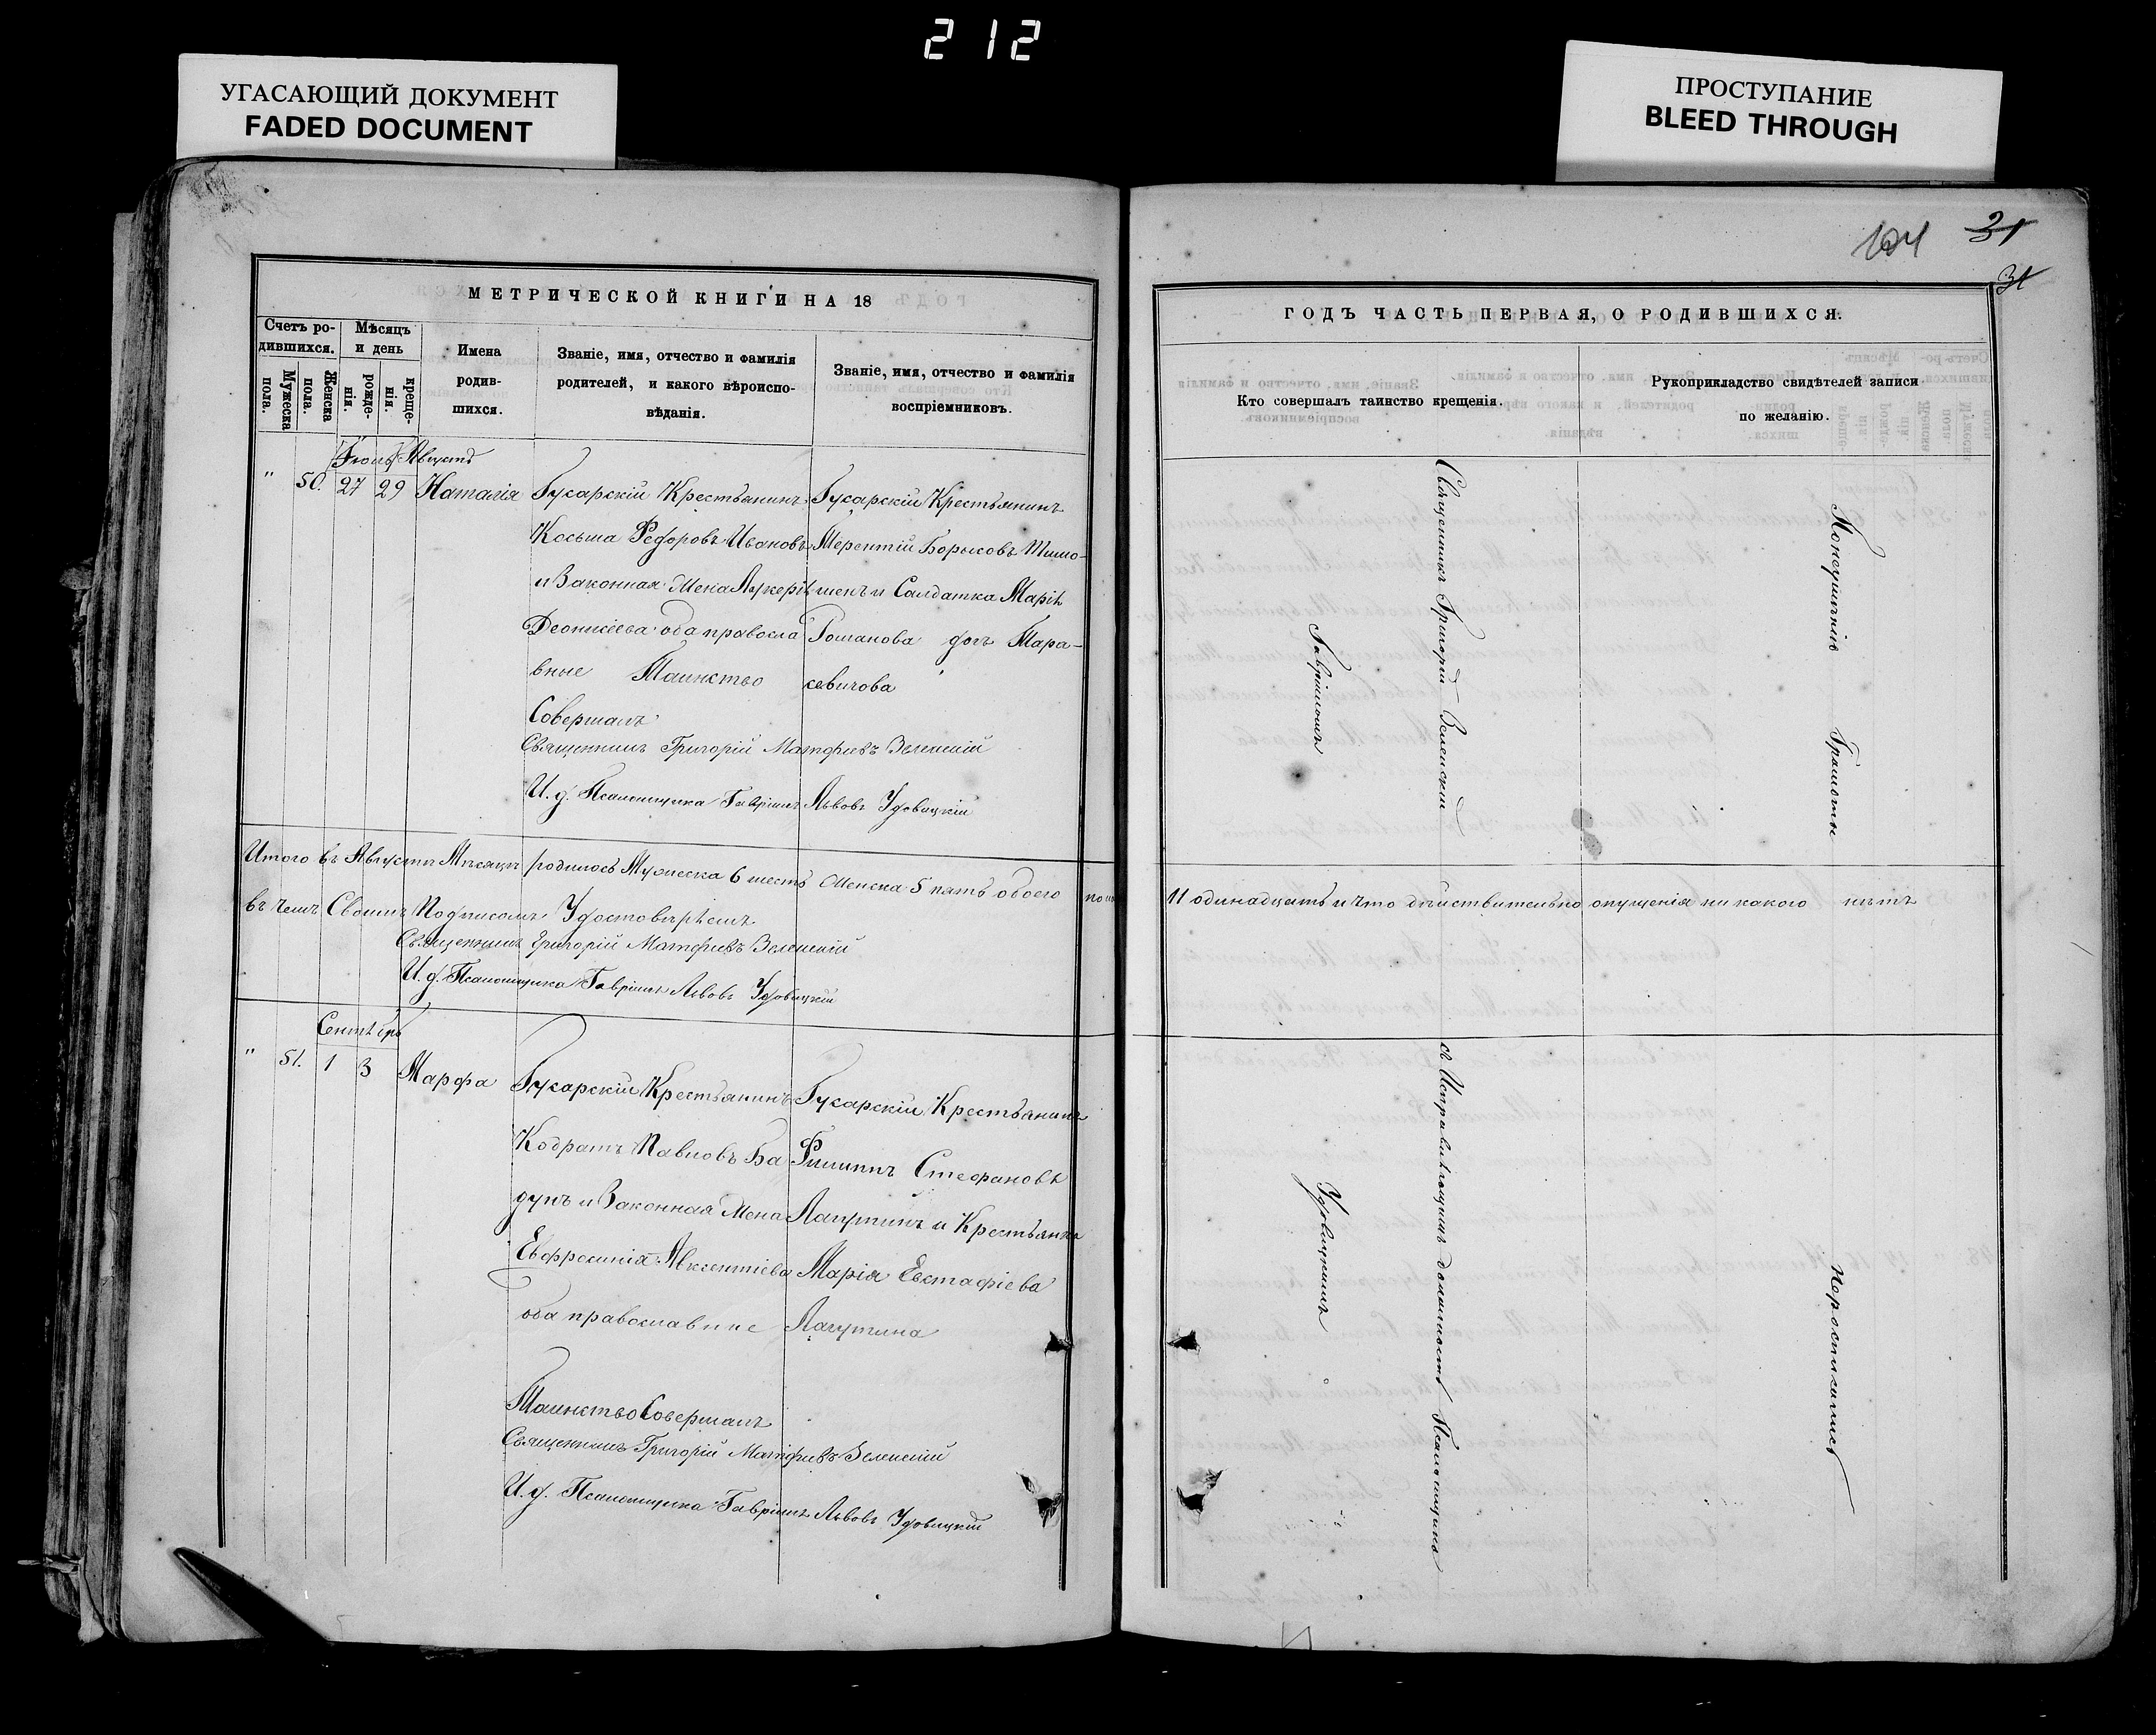 212
УГАСАЮЩИЙ ДОКУМЕНТ
FADED DOCUMENT
ПРОСТУПАНИЕ
BLEED THROUGH
31
МЕТРИЧЕСКОЙ КНИГИ НА 18
Счетъ ро-
дившихся.
Мужеска
пола.
Женска
пола.
Мѣсяцъ
и день
рожде-
нія.
креще-
нія.
Имена
родив-
шихся.
Званіе, имя, отчество и фамилія
родителей, и какого вѣроиспо-
вѣданія.
Званіе, имя, отчество и фамилія
воспріемниковъ.
Августъ
" 50. 27 29 Наталія
Гусарскій Крестьянинъ
Косьма Федоровъ Ивановъ
и Законная Жена
Деонисіева оба правосла
вные Таинство
Совершалъ
Священникъ Григорій Матфѣевъ Зеленскій
И. д. Псаломщика Гавріилъ Львовъ Удовицкій
Гусарскій Крестьянинъ
Терентій Борысовъ Тимо-
шекъ и Салдатка Марія
Романова Тара-
севичова
Итого въ Августѣ Мѣсяцѣ родилось Мужеска 6 шесть Женска 5 пять обоего пола
въ чемъ Своимъ Подписомъ Удостовѣряемъ
Священникъ Григорій Матфѣевъ Зеленскій
И. д. Псаломщика Гавріилъ Львовъ Удовицкій
Сентябрь
" 51. 1 3 Марфа
Гусарскій Крестьянинъ
Кодратъ Павловъ Ба
дунъ и Законная Жена
Евфросинія Авксентіева
оба православные
Таинство Совершалъ
Священникъ Григорій Матфѣевъ Зеленскій
И. д. Псаломщика Гавріилъ Львовъ Удовицкій
Гусарскій Крестьянинъ
Филиппъ Стефановъ
Лагутинъ и Крестьянка
Марія Евстафіева
Лагутина
ГОДЪ ЧАСТЬ ПЕРВАЯ, О РОДИВШИХСЯ.
Кто совершалъ таинство крещенія.
Рукоприкладство свидѣтелей записи
по желанію.
Священникъ Григорій Зеленскій
Гавріиломъ
11 одинадцать и что дѣйствительно опущенія ни какого нѣтъ
съ Исправляющимъ должность Псаломщика
Удовицкимъ